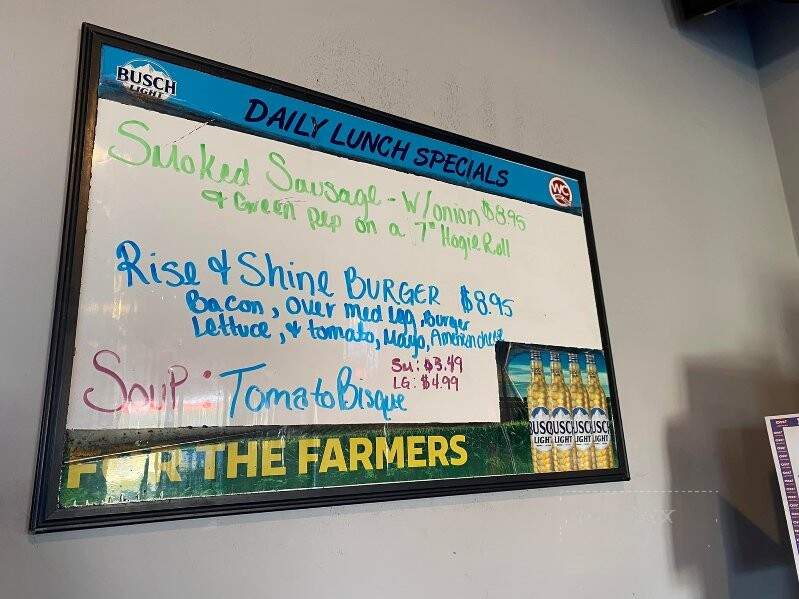 BUSCH
LIGHT
DAILY LUNCH SPECIALS
WC
Smoked Sausage - W/onion $8.95
& Green pep on a 7" Hogie Roll
Rise & Shine BURGER $8.95
Bacon, over med egg, Burger
Lettuce, & tomato, Mayo, American cheese
SM: $3.49
LG: $4.99
Soup: Tomato Bisque
FOR THE FARMERS
BUSCH BUSCH BUSCH BUSCH
LIGHT LIGHT LIGHT LIGHT